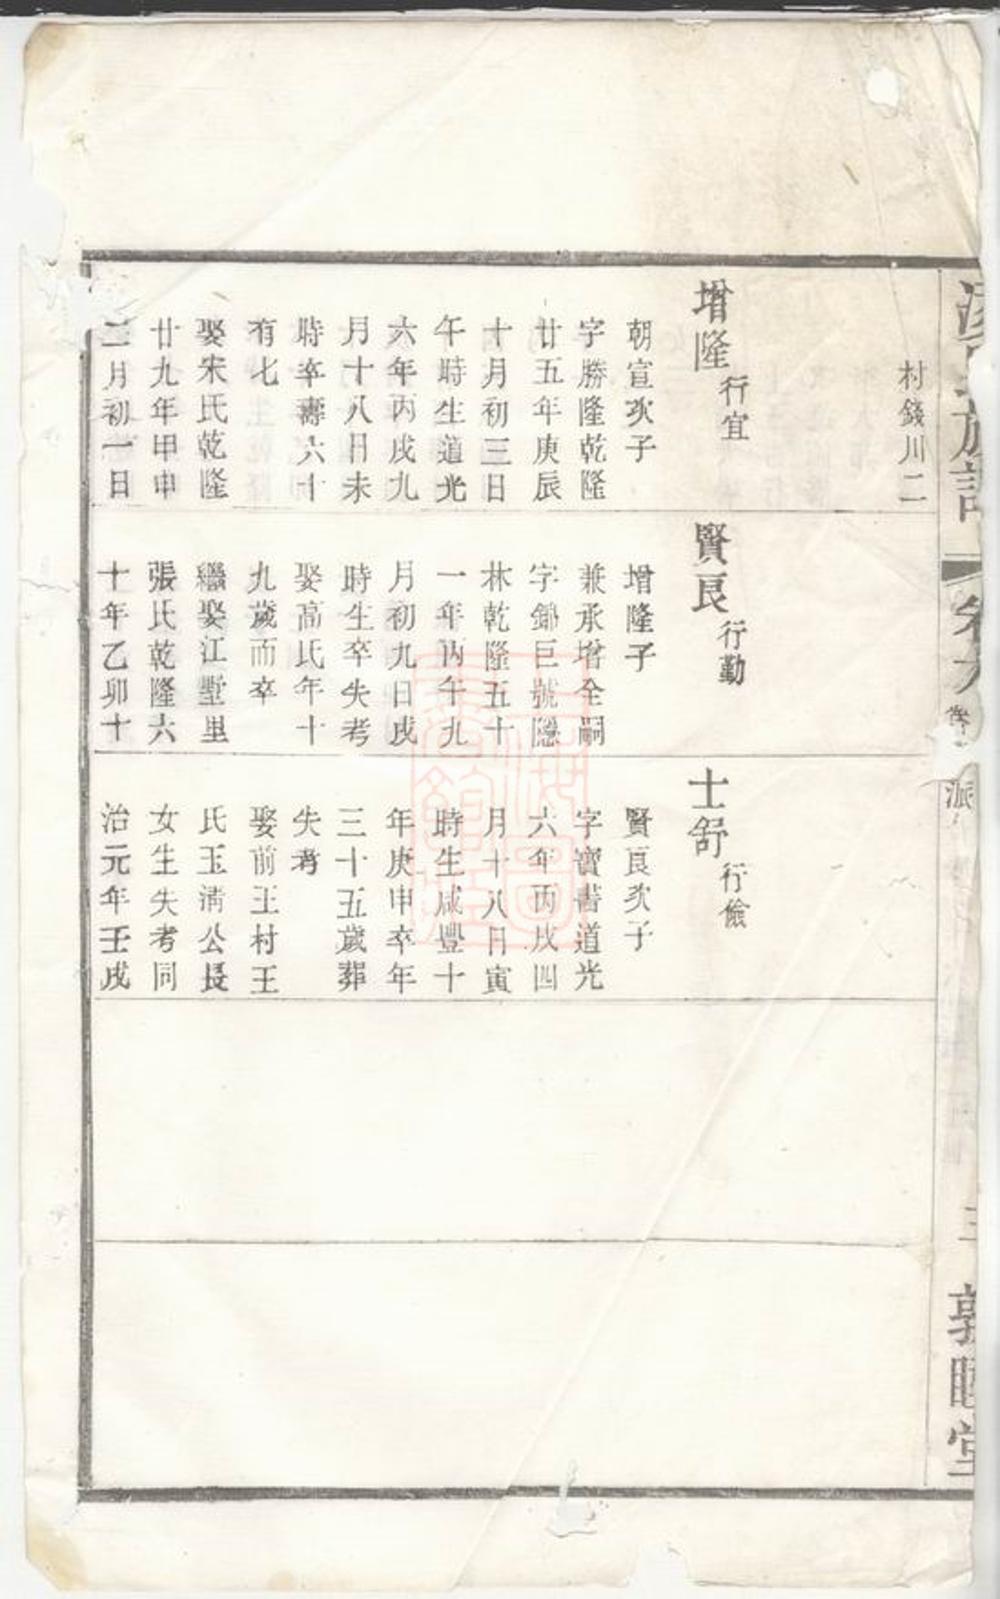 村錢川二
增隆行宜
朝宣次子
字勝隆乾隆
廿五年庚辰
十月初三日
午時生道光
六年丙戌九
月十八日未
時卒壽六十
有七
娶宋氏乾隆
廿九年甲申
二月初一日
賢良行勤
增隆子
兼承增全嗣
字錦巨號隱
林乾隆五十
一年丙午九
月初九日戌
時生卒失考
娶高氏年十
九歲而卒
繼娶江墅里
張氏乾隆六
十年乙卯十
士舒行儉
賢良次子
字寶書道光
六年丙戌四
月十八日寅
時生咸豐十
年庚申卒年
三十五歲葬
失考
娶前王村王
氏玉清公長
女生失考同
治元年壬戌
族譜
卷
派
三
敦睦堂